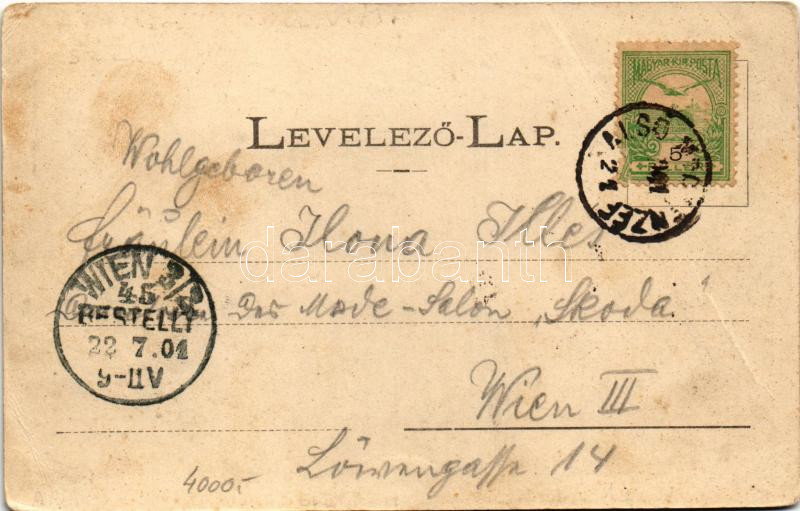 MAGYAR KIR. POSTA
5
LEVELEZŐ-LAP.
ALSÓ
21
Wohlgeboren
Fräulein Ilona Illei
WIEN 3/3
45
BESTELLT
22 7.01
9-11V
Des Mode-Salon „Skoda"
Wien III
Löwengasse 14
4000.-
darabanth